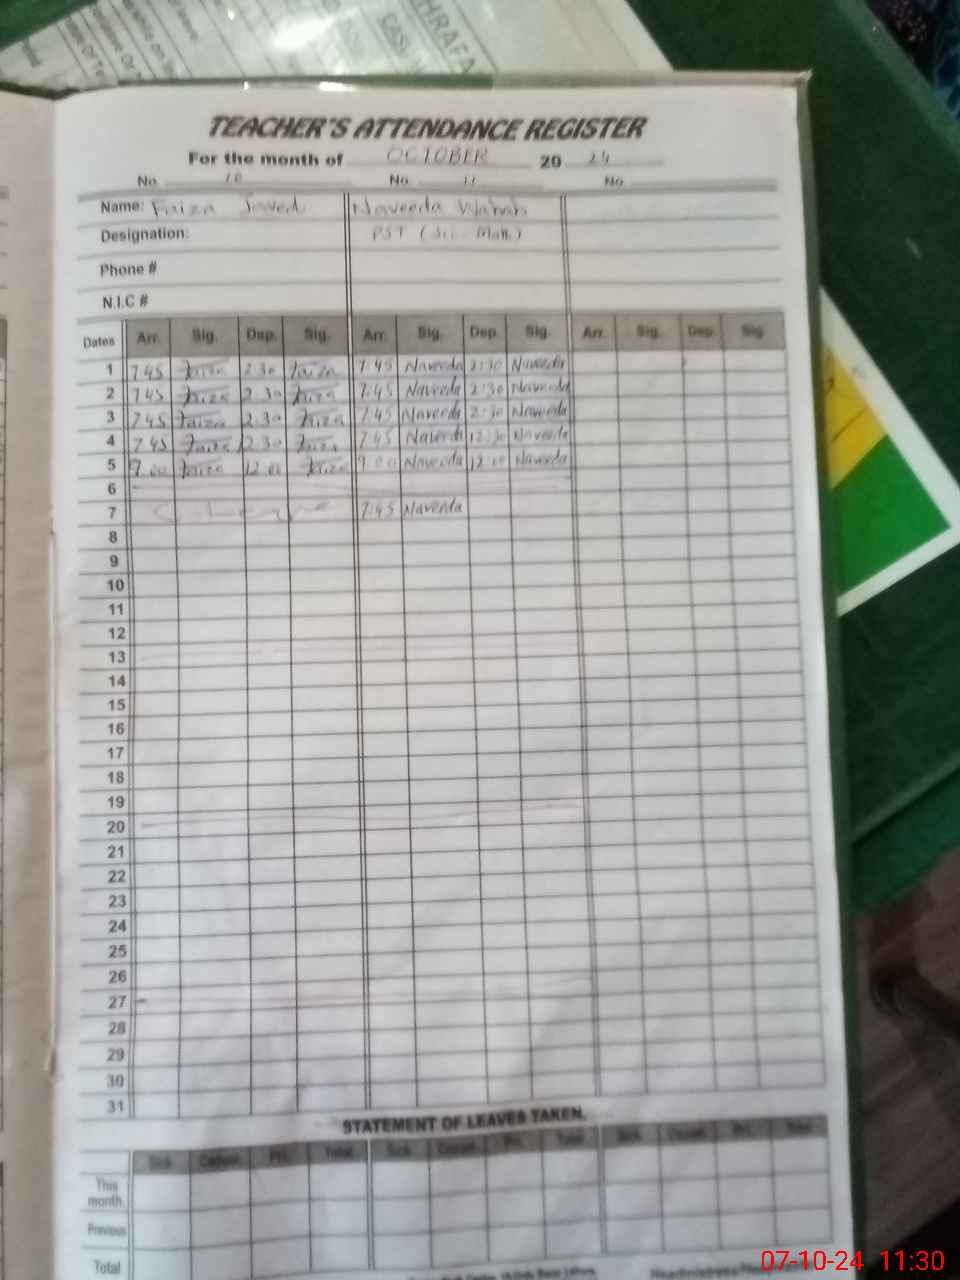 HRAFA
TEACHER'S ATTENDANCE REGISTER
For the month of OCTOBER 20 24
No. 10 No. 11 No.
Name: Faiza Javed Naveeda Wahab
Designation: PST (Sci-Math)
Phone #
N.I.C #
Dates Arr. Sig. Dep. Sig. Arr. Sig. Dep. Sig. Arr. Sig. Dep. Sig.
1 7 45 Faiza 2 30 Faiza 7:45 Naveeda 2:30 Naveeda
2 7 45 Faiza 2 30 Faiza 7:45 Naveeda 2:30 Naveeda
3 7 45 Faiza 2 30 Faiza 7:45 Naveeda 2:30 Naveeda
4 7 45 Faiza 12 30 Faiza 7:45 Naveeda 12:30 Naveeda
5 9.00 Faiza 12 00 Faiza 9:00 Naveeda 12:00 Naveeda
6
7 7:45 Naveeda
8
9
10
11
12
13
14
15
16
17
18
19
20
21
22
23
24
25
26
27
28
29
30
31
STATEMENT OF LEAVES TAKEN.
Sick Casual Pri. Total Sick Casual Pri. Total Sick Casual Pri. Total
This month
Previous
Total
07-10-24 11:30